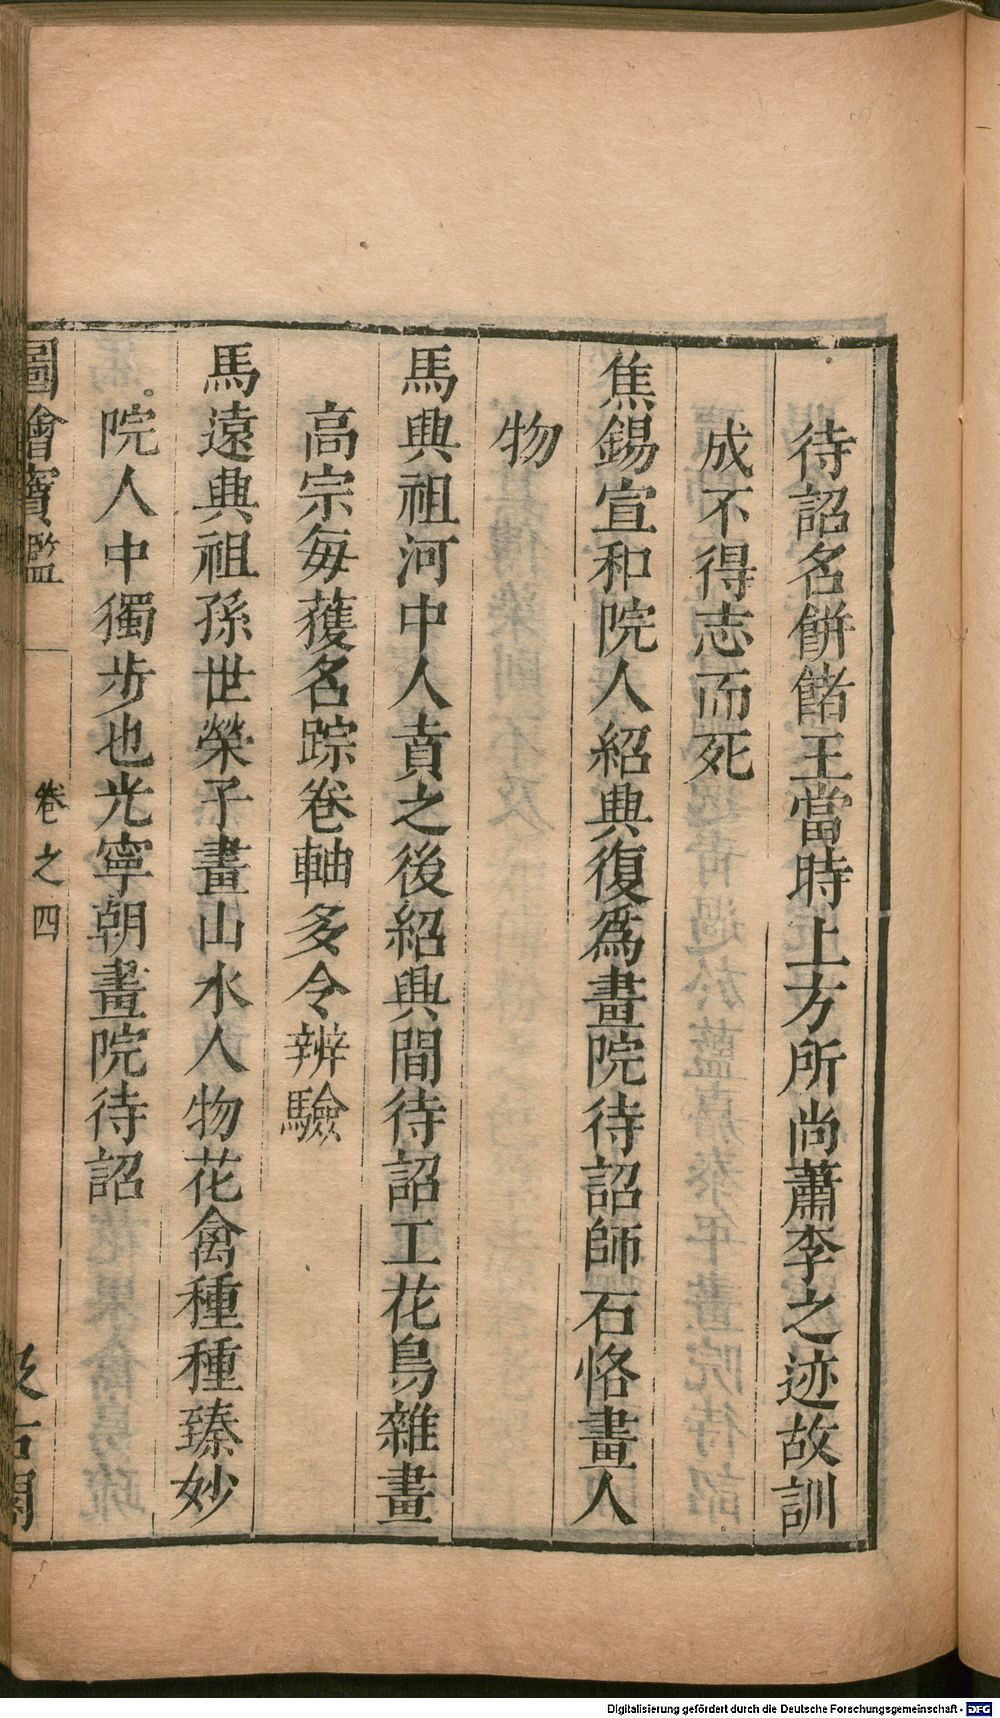 待詔名餅餙王當時上方所尚蕭李之迹故訓
成不得志而死
焦錫宣和院人紹興復爲畫院待詔師石恪畫人
物
馬興祖河中人賁之後紹興間待詔工花鳥雜畫
高宗每獲名踪卷軸多令辨驗
馬遠興祖孫世榮子畫山水人物花禽種種臻妙
院人中獨步也光寧朝畫院待詔
圖繪寶鑑
卷之四
汲古閣
Digitalisierung gefördert durch die Deutsche Forschungsgemeinschaft - DFG